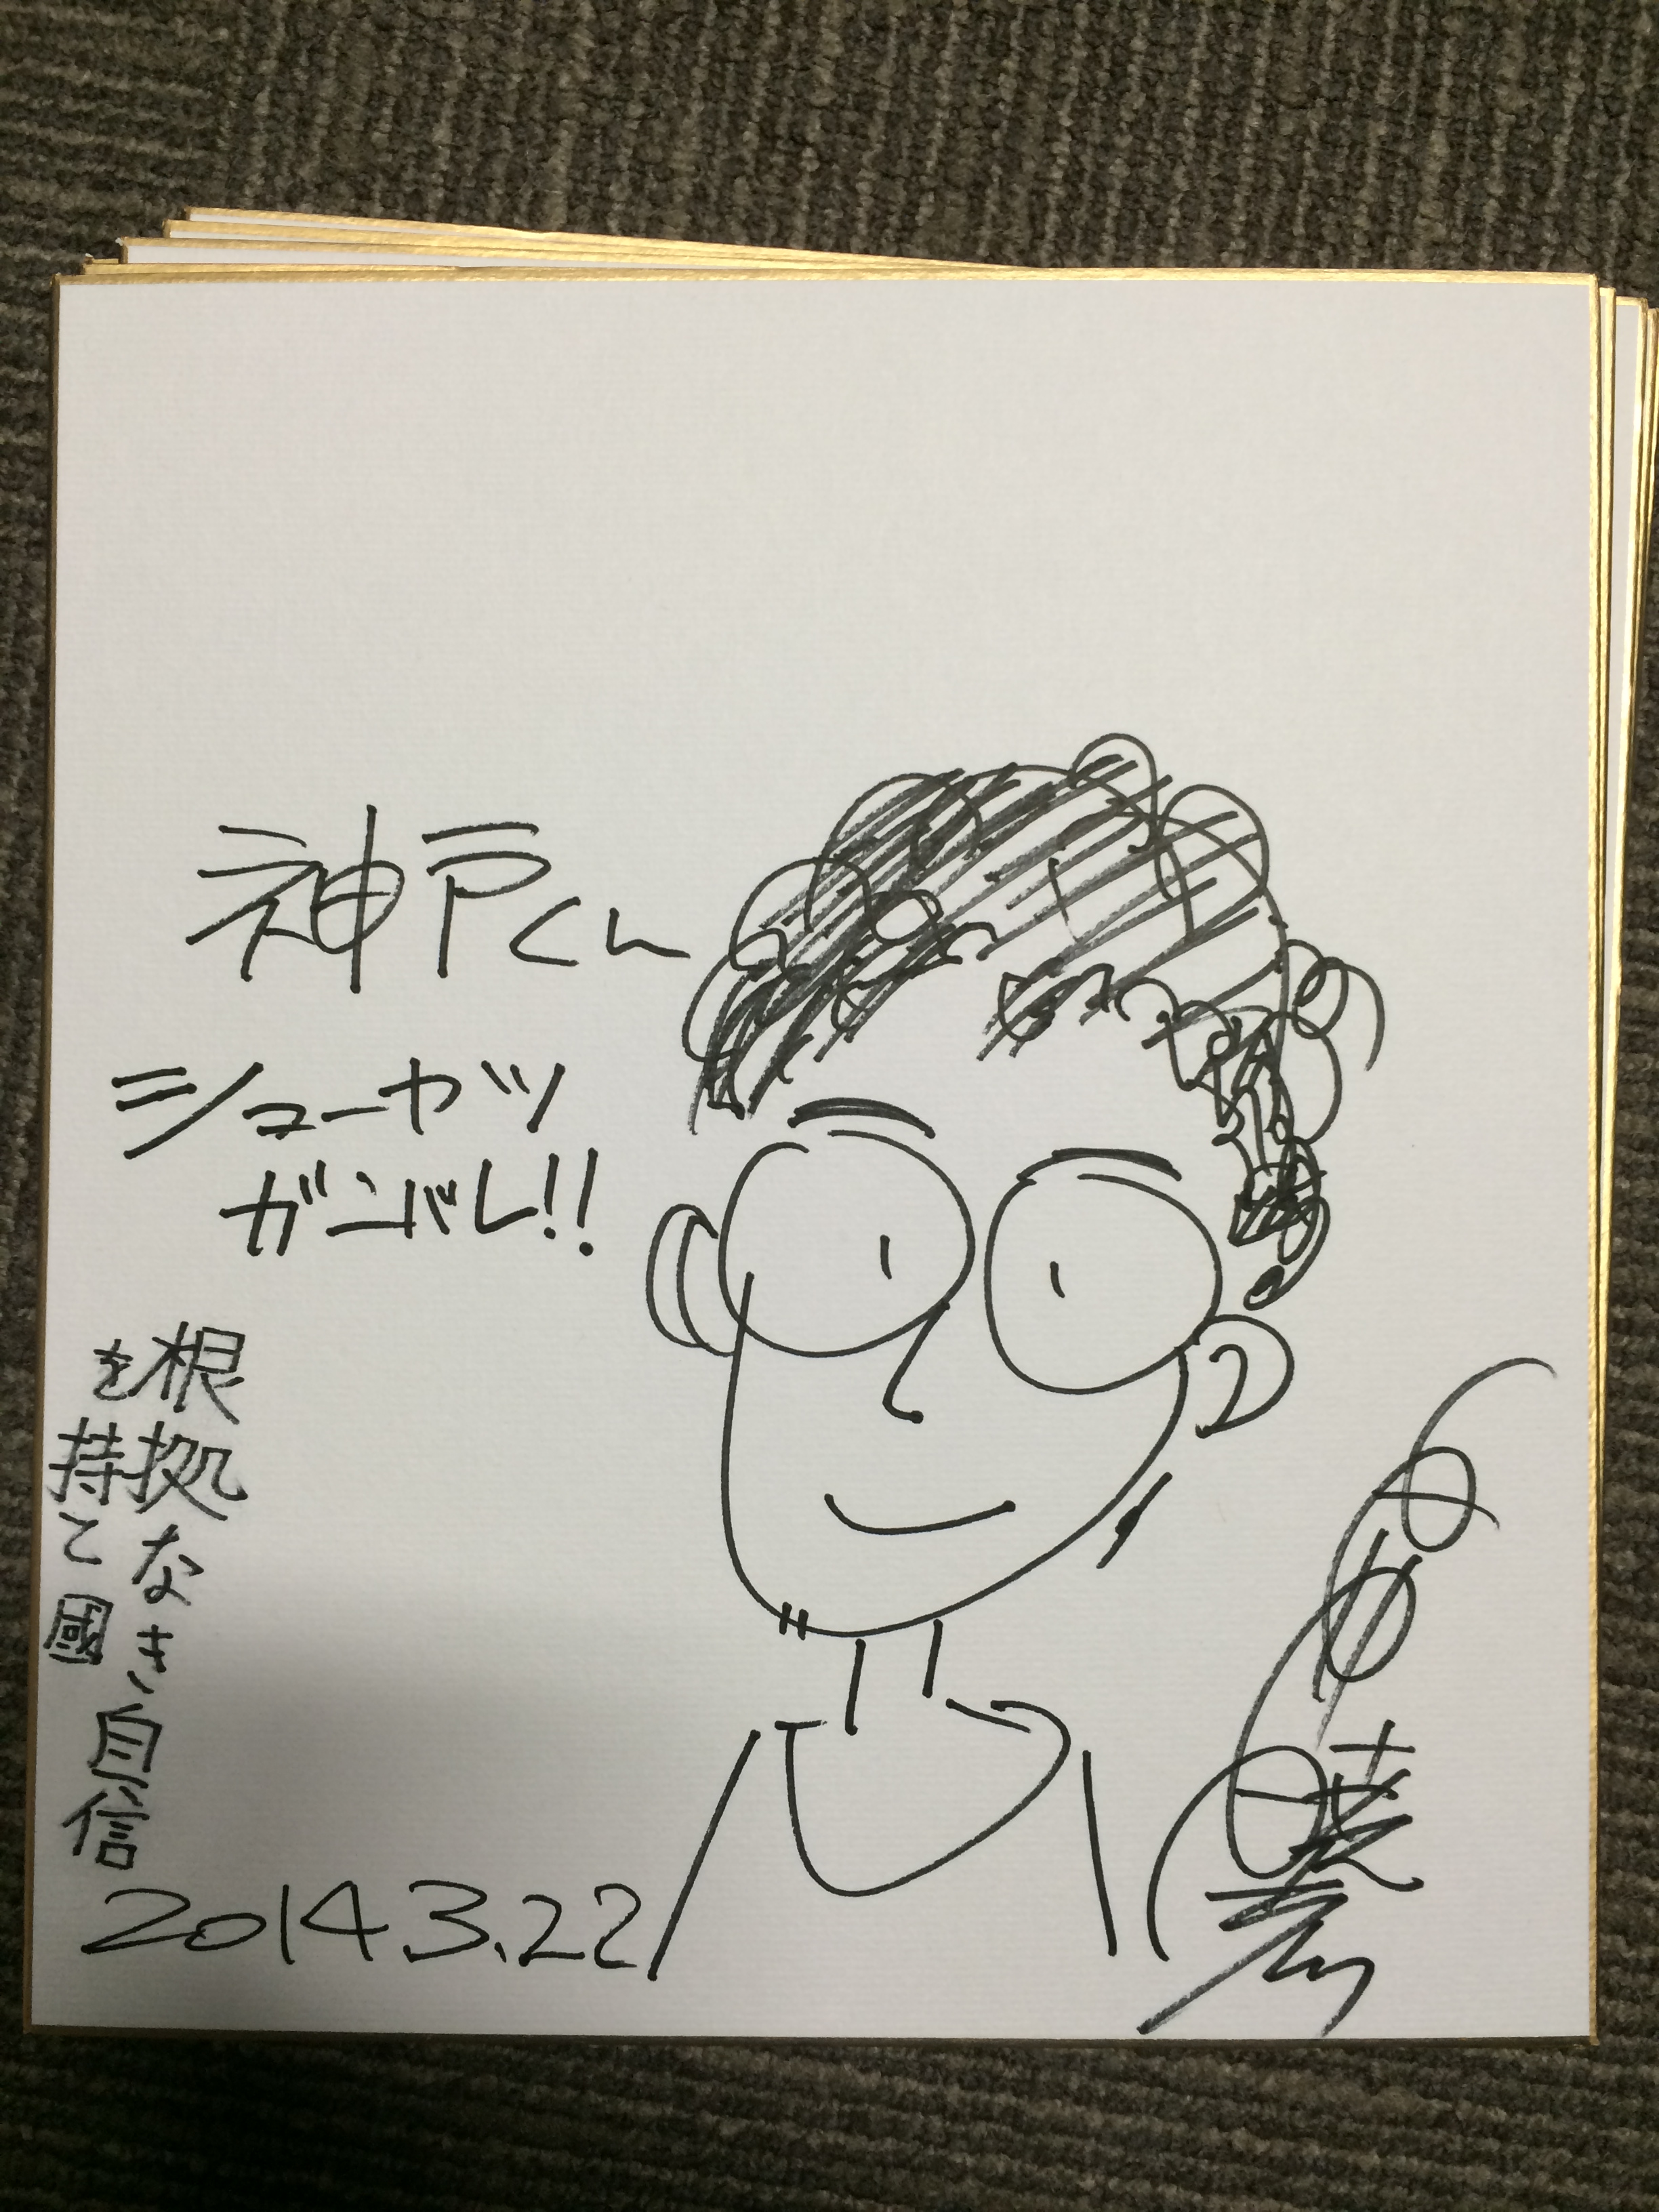 神戸くん
シューカツ
ガンバレ!!
根拠なき自信
を持て 國
2014.3.22